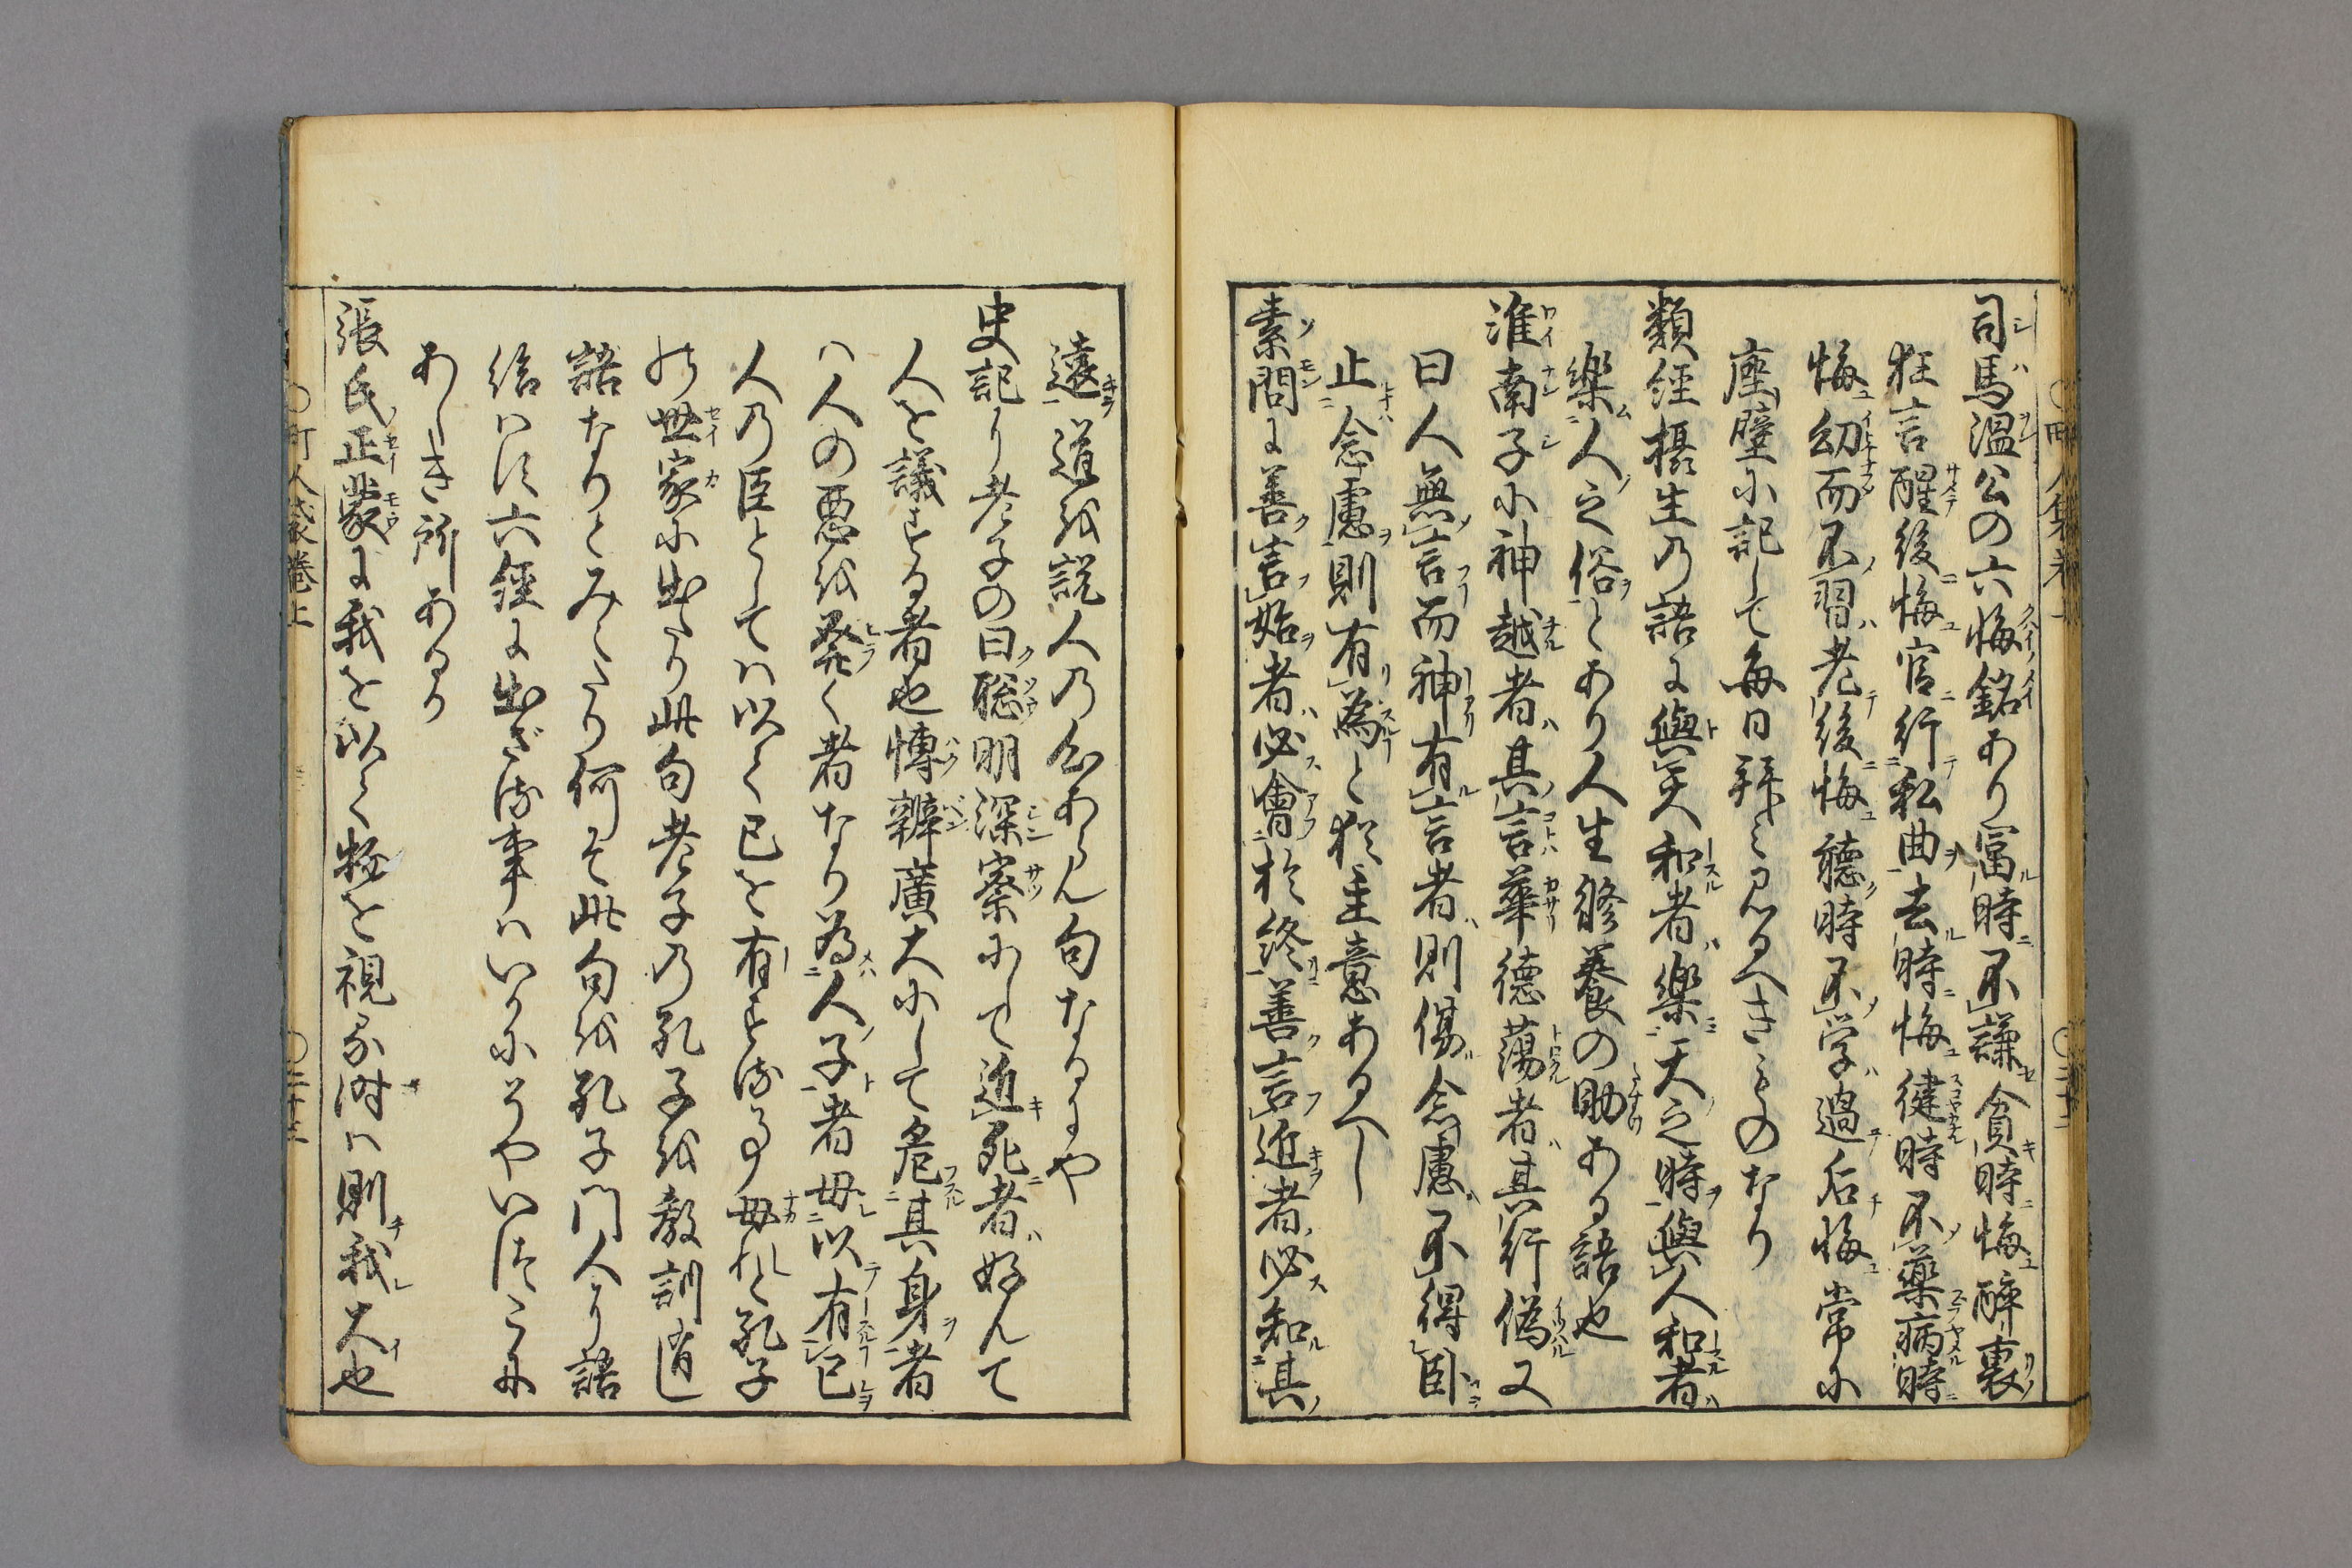 司馬温公の六悔銘あり富時不謙貧時悔酔裏
狂言醒後悔官行私曲去時悔健時不薬病時
悔幼而不習老後悔聴時不学過后悔常に
座壁に記して毎日拝し見るへきものなり
類経摂生の語に與天和者楽天之時與人和者
楽人之俗とあり人生修養の助ある語也
淮南子に神越者其言華徳蕩者其行偽又
曰人無言而神有言者則傷念慮不得臥
止念慮則有為と猶主意あるへし
素問に善言始者必會於終善言近者必知其
遠道を説人の心あらん句なるにや
史記に老子の曰聡明深察にして近死者好んて
人を議する者也博辨廣大にして危其身者
ハ人の悪を発く者なり為人子者毋以有己
人の臣としてハ以て已を有する事毋れと孔子
の世家に出たり此句老子の孔子を教訓道し
語なりとみへたり何そ此句を孔子門人に語
給ハす六経に出さる事ハいかにそやいはんに
あしき所あるか
張氏正蒙に我を以て物を視る時ハ則我大也
町人袋巻上